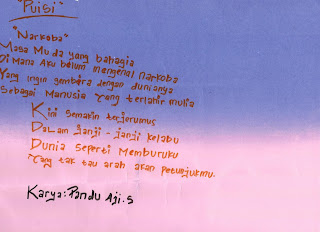 "Puisi"
"Narkoba"
Masa Muda yang bahagia
Di Mana Aku belum mengenal narkoba
Yang ingin gembira dengan dunianya
Sebagai Manusia yang terlahir mulia
Kini semakin terjerumus
Dalam janji - janji kelabu
Dunia seperti Memburuku
Yang tak tau arah akan petunjukmu.
Karya: Pandu Aji.S